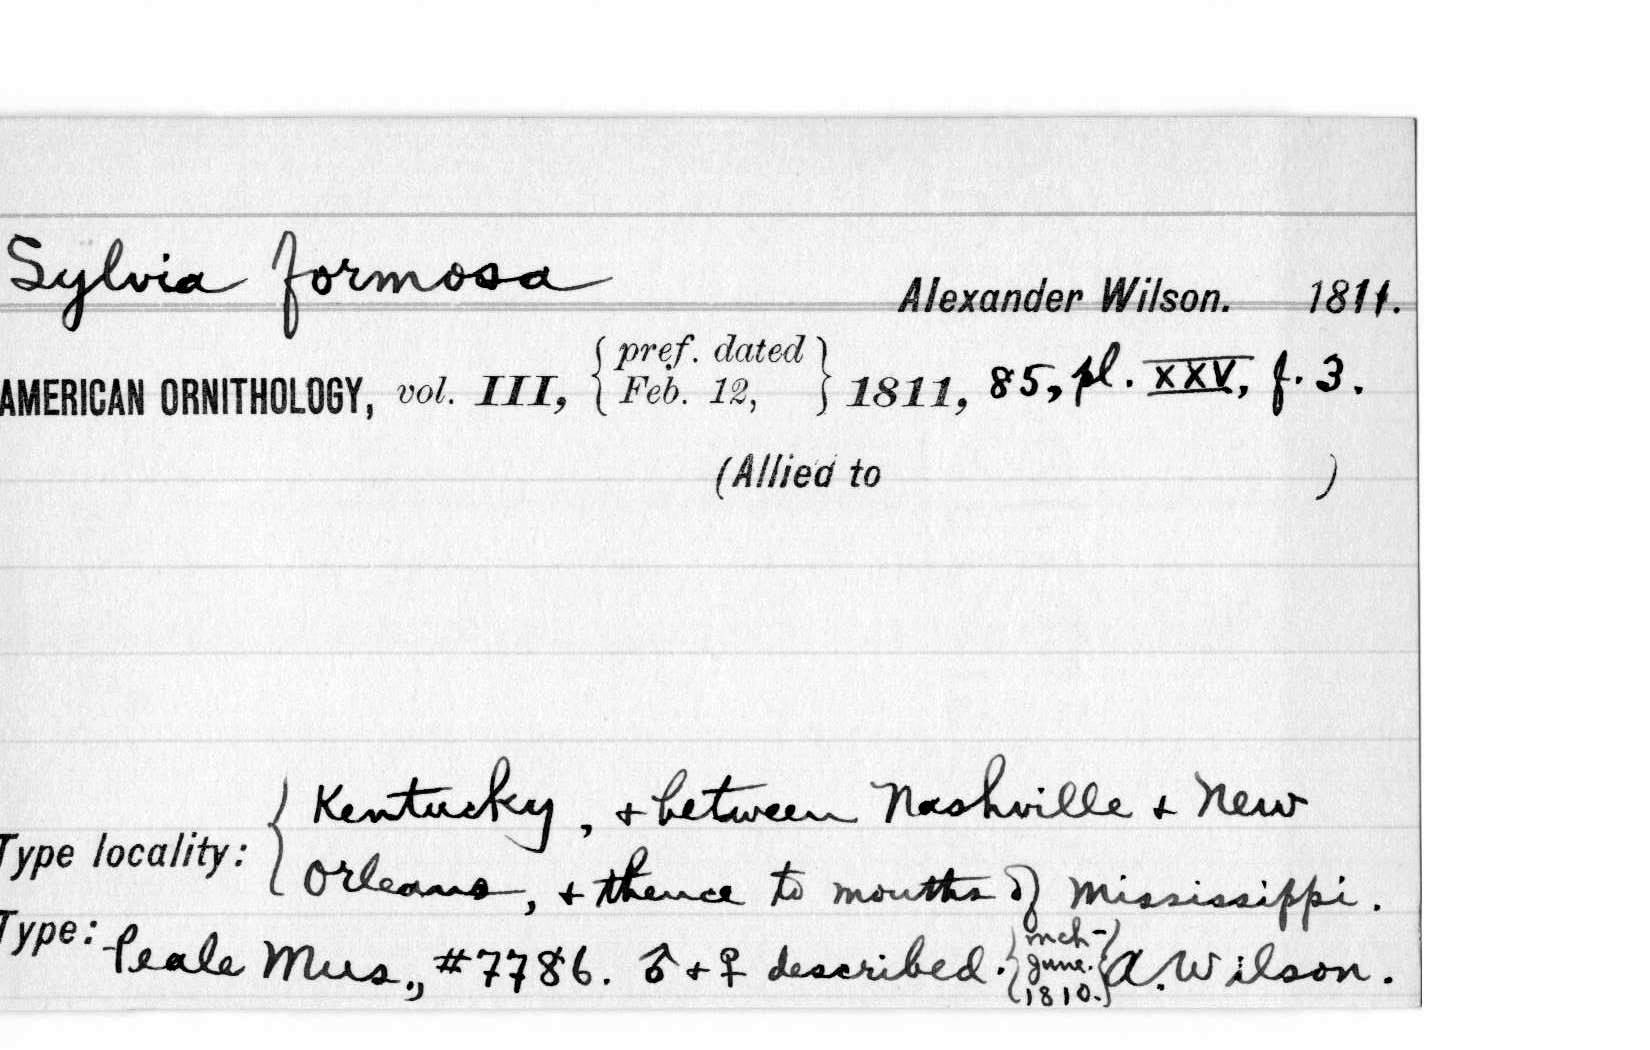 Sylvia formosa
Alexander Wilson. 1811.
AMERICAN ORNITHOLOGY, vol. III, { pref. dated Feb. 12, } 1811, 85, pl. XXV, f. 3.
(Allied to )
Type locality: { Kentucky, + between Nashville + New
Orleans, + thence to mouths of Mississippi.
Type: Peale Mus., #7786. ♂ + ♀ described. { mch- June. 1810. } A. Wilson.